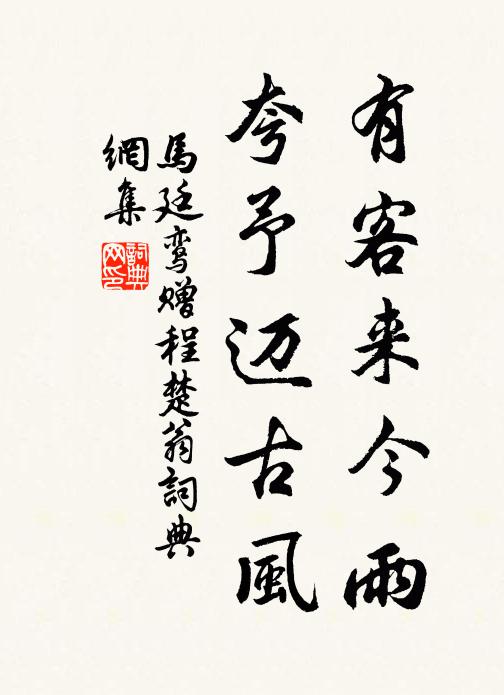 有客来今雨
夸予迈古風
馬廷鸾贈程楚翁詞典
網集
詞典
网印